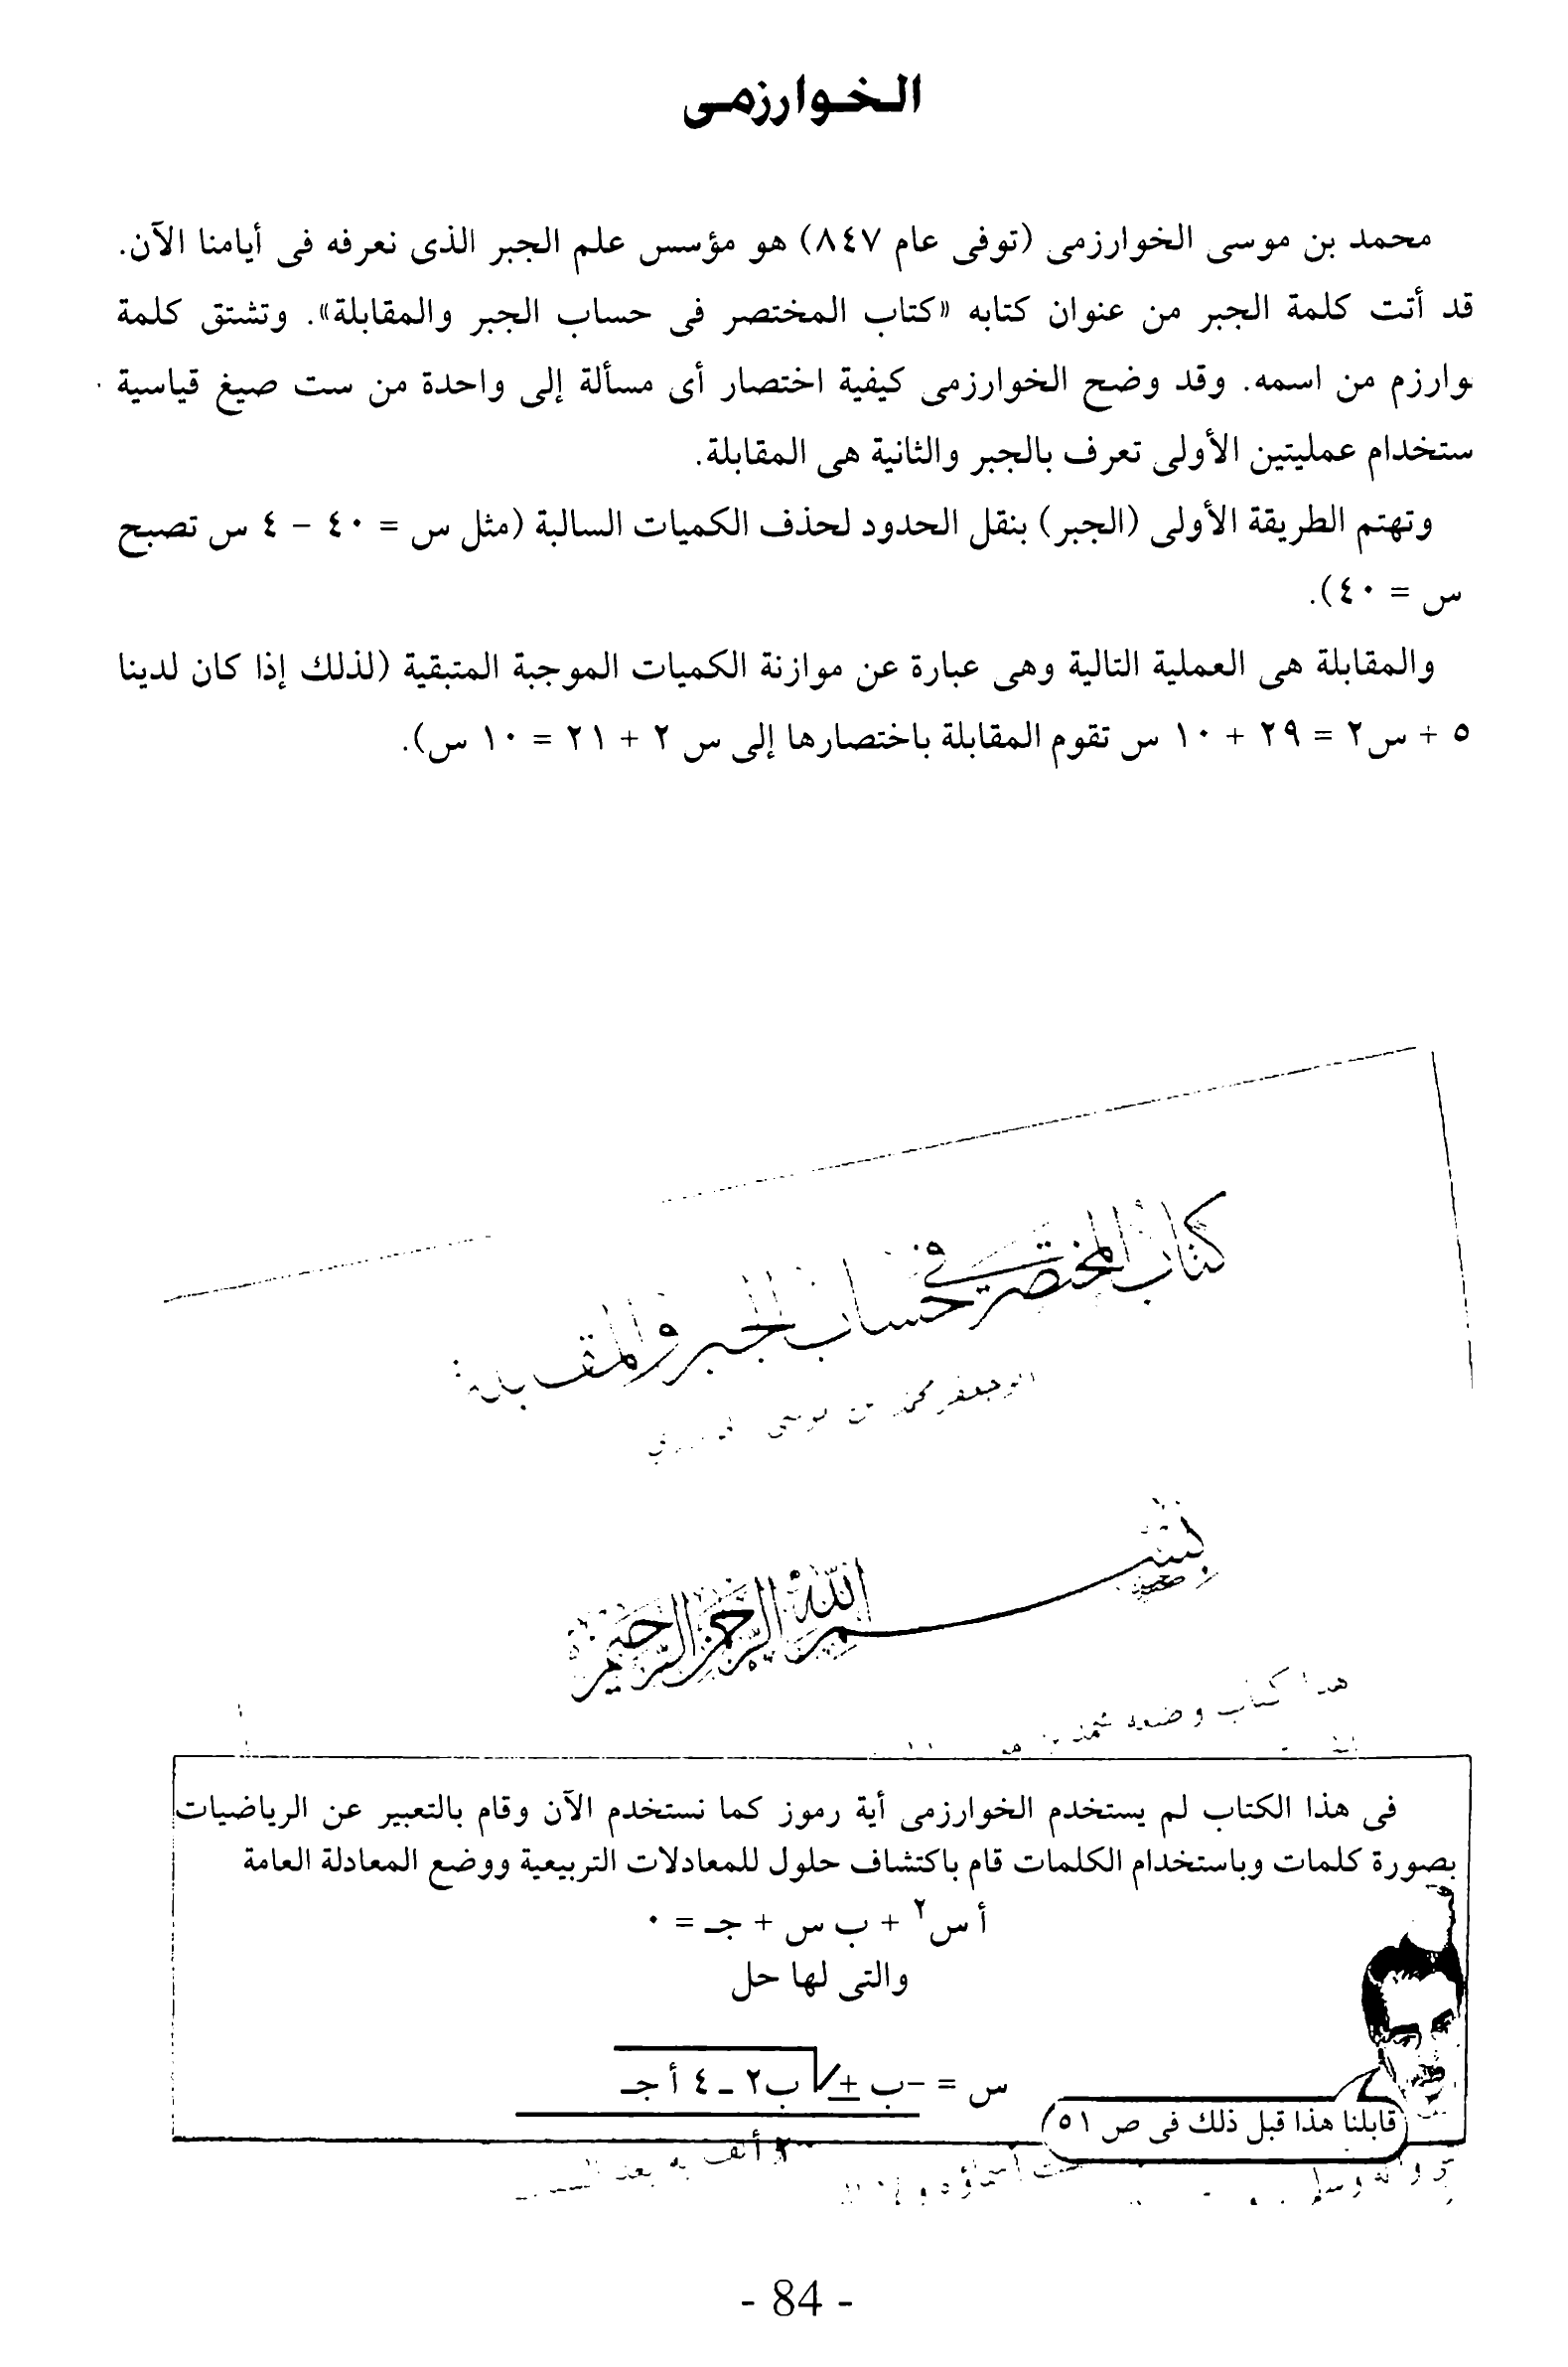 الخوارزمى
محمد بن موسى الخوارزمى (توفى عام ٨٤٧) هو مؤسس علم الجبر الذى نعرفه فى أيامنا الآن.
قد أتت كلمة الجبر من عنوان كتابه «كتاب المختصر فى حساب الجبر والمقابلة». وتشتق كلمة
وارزم من اسمه. وقد وضح الخوارزمى كيفية اختصار أى مسألة إلى واحدة من ست صيغ قياسية
ستخدام عمليتين الأولى تعرف بالجبر والثانية هى المقابلة.
وتهتم الطريقة الأولى (الجبر) بنقل الحدود لحذف الكميات السالبة (مثل س = ٤٠ - ٤ س تصبح
س = ٤٠).
والمقابلة هى العملية التالية وهى عبارة عن موازنة الكميات الموجبة المتبقية (لذلك إذا كان لدينا
٥ + س٢ = ٢٩ + ١٠ س تقوم المقابلة باختصارها إلى س ٢ + ٢١ = ١٠ س).
كتاب المختصر في حساب الجبر والمقابلة
محمد بن موسى
بسم الله الرحمن الرحيم
هذا كتاب وضعه محمد بن
فى هذا الكتاب لم يستخدم الخوارزمى أية رموز كما نستخدم الآن وقام بالتعبير عن الرياضيات
بصورة كلمات وباستخدام الكلمات قام باكتشاف حلول للمعادلات التربيعية ووضع المعادلة العامة
أ س٢ + ب س + جـ = ٠
والتى لها حل
س = -ب ± √ب٢ ـ ٤ أ جـ
٢ أ
قابلنا هذا قبل ذلك فى ص ٥١
- 84 -